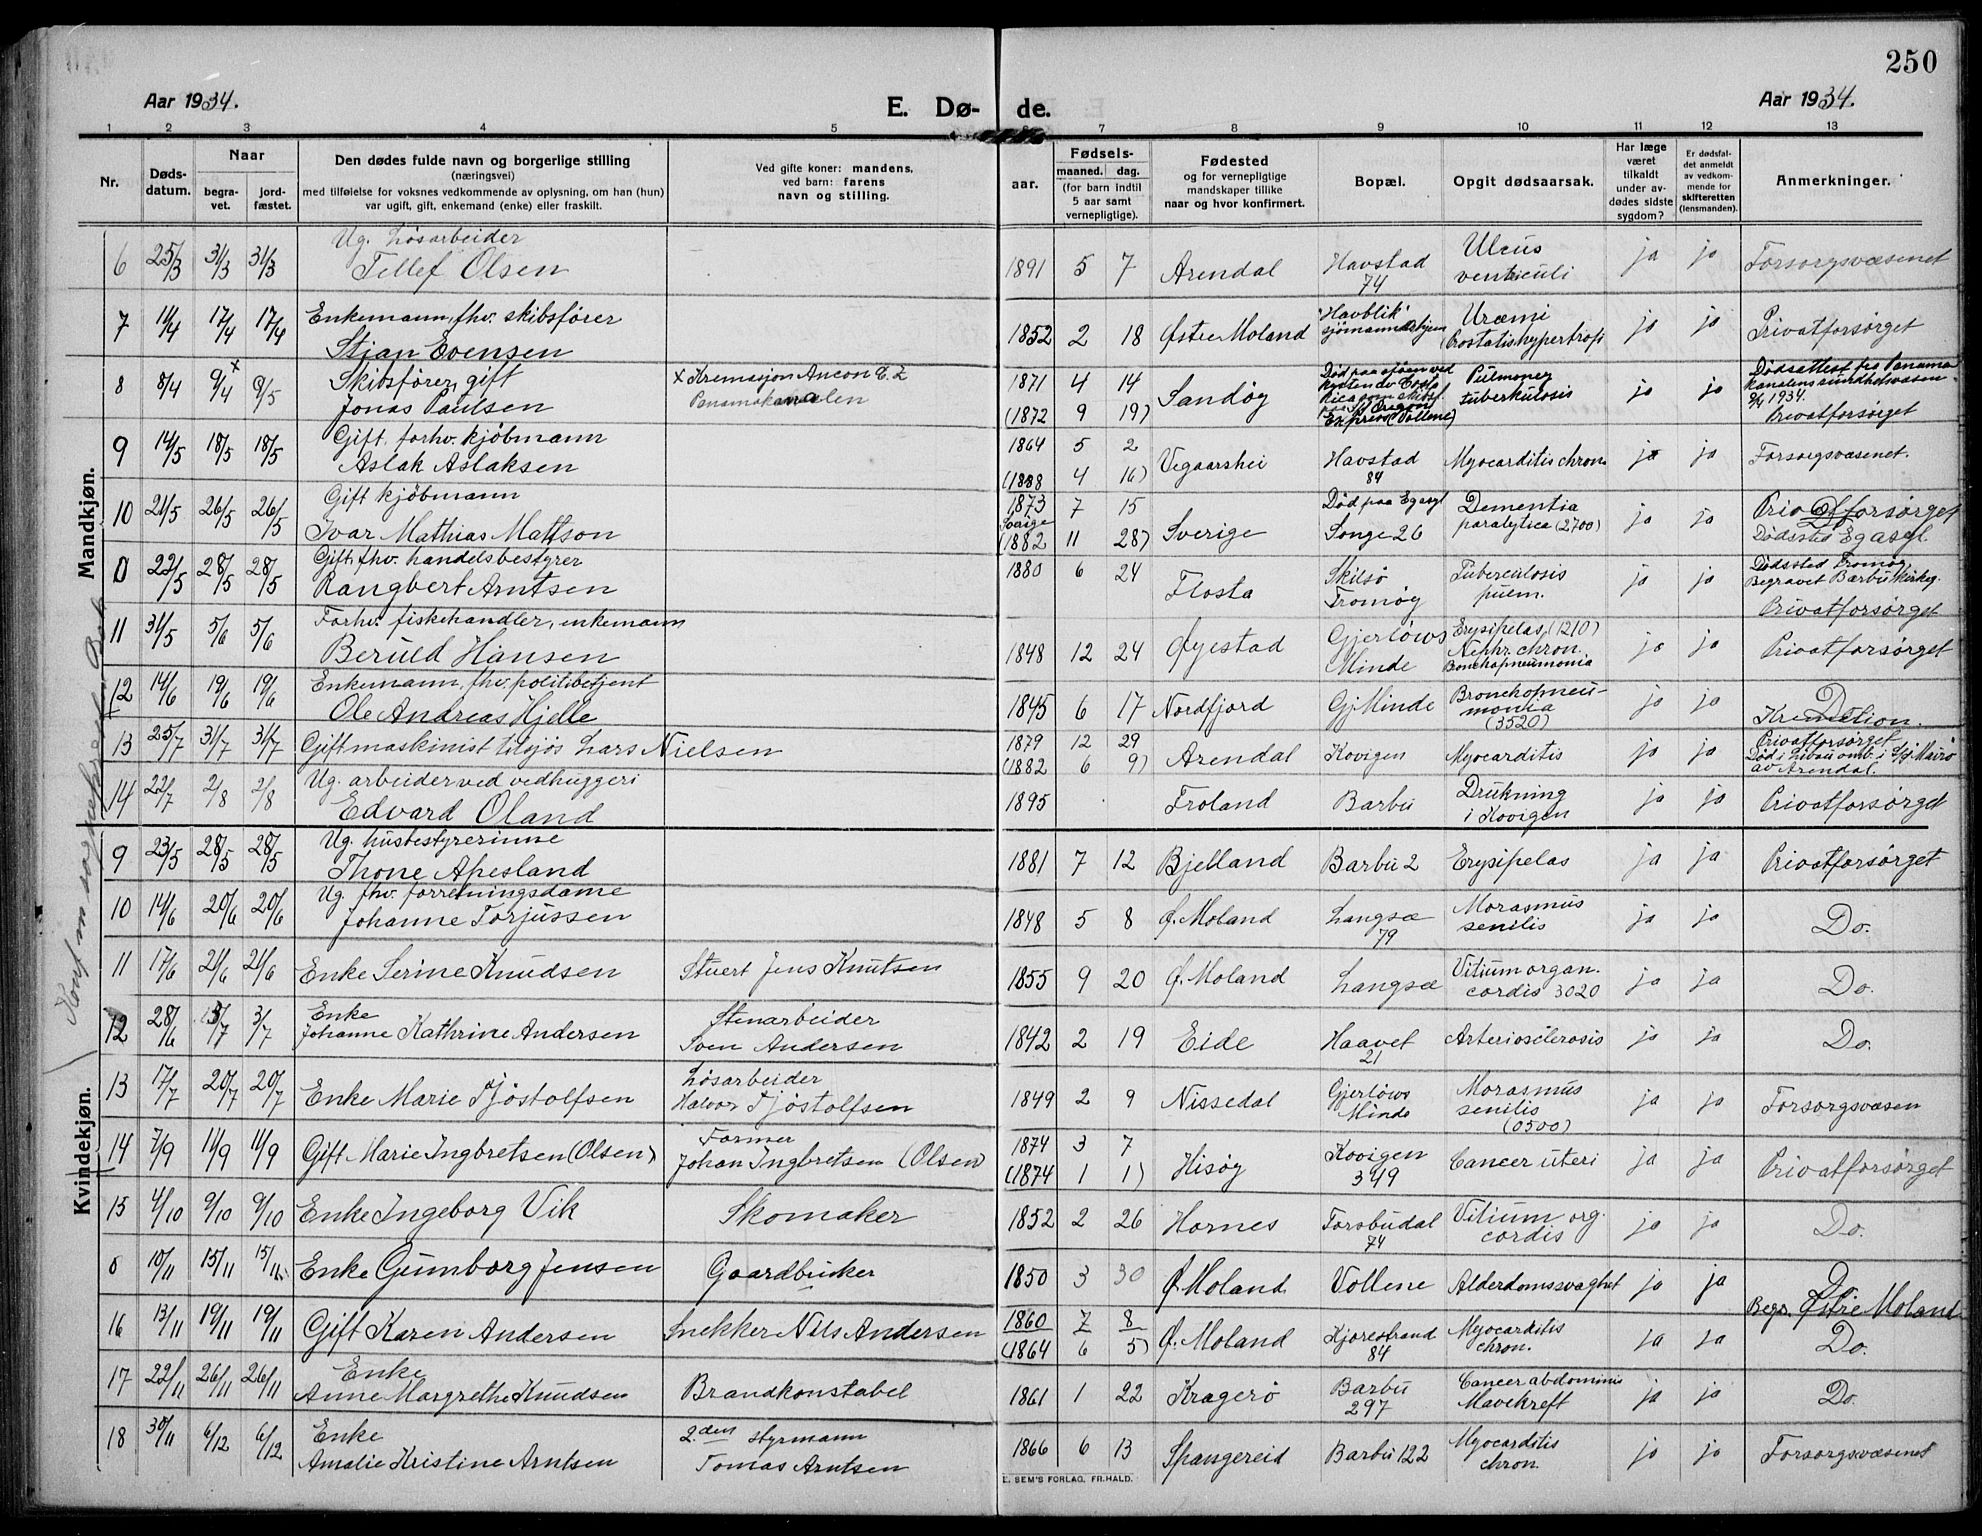 250
Aar 1934.
E. Dø- de.
Aar 1934.
1 2 3 4 5 6 7 8 9 10 11 12 13
Nr.
Døds-
datum.
Naar
begra-
vet.
jord-
fæstet.
Den dødes fulde navn og borgerlige stilling
(næringsvei)
med tilføielse for voksnes vedkommende av oplysning, om han (hun)
var ugift, gift, enkemand (enke) eller fraskilt.
Ved gifte koner: mandens,
ved barn: farens
navn og stilling.
Fødsels-
aar.
maaned. dag.
(for barn indtil
5 aar samt
vernepligtige).
Fødested
og for vernepligtige
mandskaper tillike
naar og hvor konfirmert.
Bopæl.
Opgit dødsaarsak.
Har læge
været
tilkaldt
under av-
dødes sidste
sygdom?
Er dødsfal-
det anmeldt
av vedkom-
mende for
skifteretten
(lensmanden).
Anmerkninger.
Mandkjøn.
6 25/3 31/3 31/3 Ug. Løsarbeider
Tellef Olsen
1891 5 7 Arendal Havstad
74
Ulcus
ventriculi
ja ja Forsorgsvæsenet
7 11/4 17/4 17/4 Enkemann, fhv. skibsfører
Stian Evensen
1852 2 18 Østre Moland "Havblik"
Uræmi
Prostatishypertrofi
ja ja Privatforsørget
8 8/4 9/4 x 9/5 Skibsfører, gift
Jonas Paulsen
x Kremasjon Ancon C. Z
Panamakanalen
1871 4 14
(1872 9 19)
Sandøy
Død paa sjøen ved
kysten av Costa
Rica
(Vollene)
Pulmoner
tuberkulosis
ja ja
Dødsattest fra Panama
kanalens sundhetsvæsen
9/4 1934.
Privatforsørget
9 14/5 18/5 18/5 Gift, forhv. kjøbmann
Aslak Aslaksen
1864 5 2
(1888 4 16)
Vegaarshei Havstad
84
Myocarditis chron. ja ja Forsorgsvæsenet.
10 21/5 26/5 26/5 Gift kjøbmann
Ivar Mathias Mattson
1873 7 15
Sverige
(1882 11 28)
Sverige
Død paa Egasyl
Songe 26
Dementia
paralytica (2700)
ja ja
forsørget
Dødssted Egasyl
0 22/5 28/5 28/5 Gift, fhv. handelsbestyrer
Rangbert Arntsen
1880 6 24 Flosta Skilsø
Tromøy
Tuberculosis
pulm.
ja ja
Dødssted Tromøy
Begravet Barbu kirkeg.
Privatforsørget
11 31/5 5/6 5/6 Forhv. fiskehandler, enkemann
Beruld Hansen
1848 12 24 Øyestad Gjerløws
Minde
Erysipelas (1210)
Nephr. chron.
Bonchopneumonia
ja ja Privatforsørget
12 14/6 19/6 19/6 Enkemann, fhv. politibetjent
Ole Andreas Hjelle
1845 6 17 Nordfjord Gj. Minde
Bronchopneu-
monia
(3520)
ja ja
Kremation.
13 25/7 31/7 31/7 Gift maskinist tilsjøs Lars Nielsen
1879 12 29
(1882 6 9)
Arendal Kovigen Myocarditis ja ja
Privatforsørget
av Arendal.
14 22/7 2/8 2/8 Ug. arbeider ved vedhuggeri
Edvard Oland
1895 Froland Barbu Drukning
i Kovigen
ja ja Privatforsørget
Kvindekjøn.
9 23/5 28/5 28/5 Ug. husbestyrerinne
Thone Apesland
1881 7 12 Bjelland Barbu 2 Erysipelas ja ja Privatforsørget
10 14/6 20/6 20/6 Ug. fhv. forretningsdame
Johanne Torjussen
1848 5 8 Ø. Moland Langsæ
79
Morasmus
senilis
ja ja Do.
11 17/6 21/6 21/6 Enke Serine Knudsen
Stuert Jens Knutsen
1855 9 20 Ø. Moland Langsæ Vitium organ.
cordis 3020
ja ja Do.
12 28/6 3/7 3/7 Enke
Johanne Kathrine Andersen
Stenarbeider
Sven Andersen
1842 2 19 Eide Haavet
21
Arteriosclerosis ja ja Do.
13 17/7 20/7 20/7 Enke Marie Tjøstolfsen
Løsarbeider
Halvor Tjøstolfsen
1849 2 9 Nissedal Gjerløws
Minde
Morasmus
senilis
(0500)
ja ja Forsorgsvæsen
14 7/9 11/9 11/9 Gift Marie Ingbretsen (Olsen)
Former
Johan Ingbretsen (Olsen)
1874 3 7
(1874 1 1)
Hisøy Kovigen
349
Cancer uteri ja ja Privatforsørget
15 4/10 9/10 9/10 Enke Ingeborg Vik
Skomaker
1852 2 26 Hornes Forsbudal
74
Vitium org.
cordis
ja ja Do.
0 10/11 15/11 15/11 Enke Gumborg Jensen
Gaardbruker
1850 3 30 Ø. Moland Vollene Alderdomssvaghet ja ja
Begr. Østre Moland
16 13/11 19/11 19/11 Gift Karen Andersen
Snekker Nils Andersen
1860 7 8
(1864 6 5)
Ø. Moland Kjørestrand
84
Myocarditis
chron.
ja ja Do.
17 22/11 26/11 26/11 Enke
Anne Margrethe Knudsen
Brandkonstabel
1861 1 22 Kragerø Barbu
297
Cancer abdominis
Mavekreft
ja ja Do.
18 30/11 6/12 6/12 Enke
Amalie Kristine Arntsen
2.den styrmann
Tomas Arntsen
1866 6 13 Spangereid Barbu 122 Myocarditis
chron.
ja ja Forsorgsvæsenet
E. SEM'S FORLAG, FR.HALD.